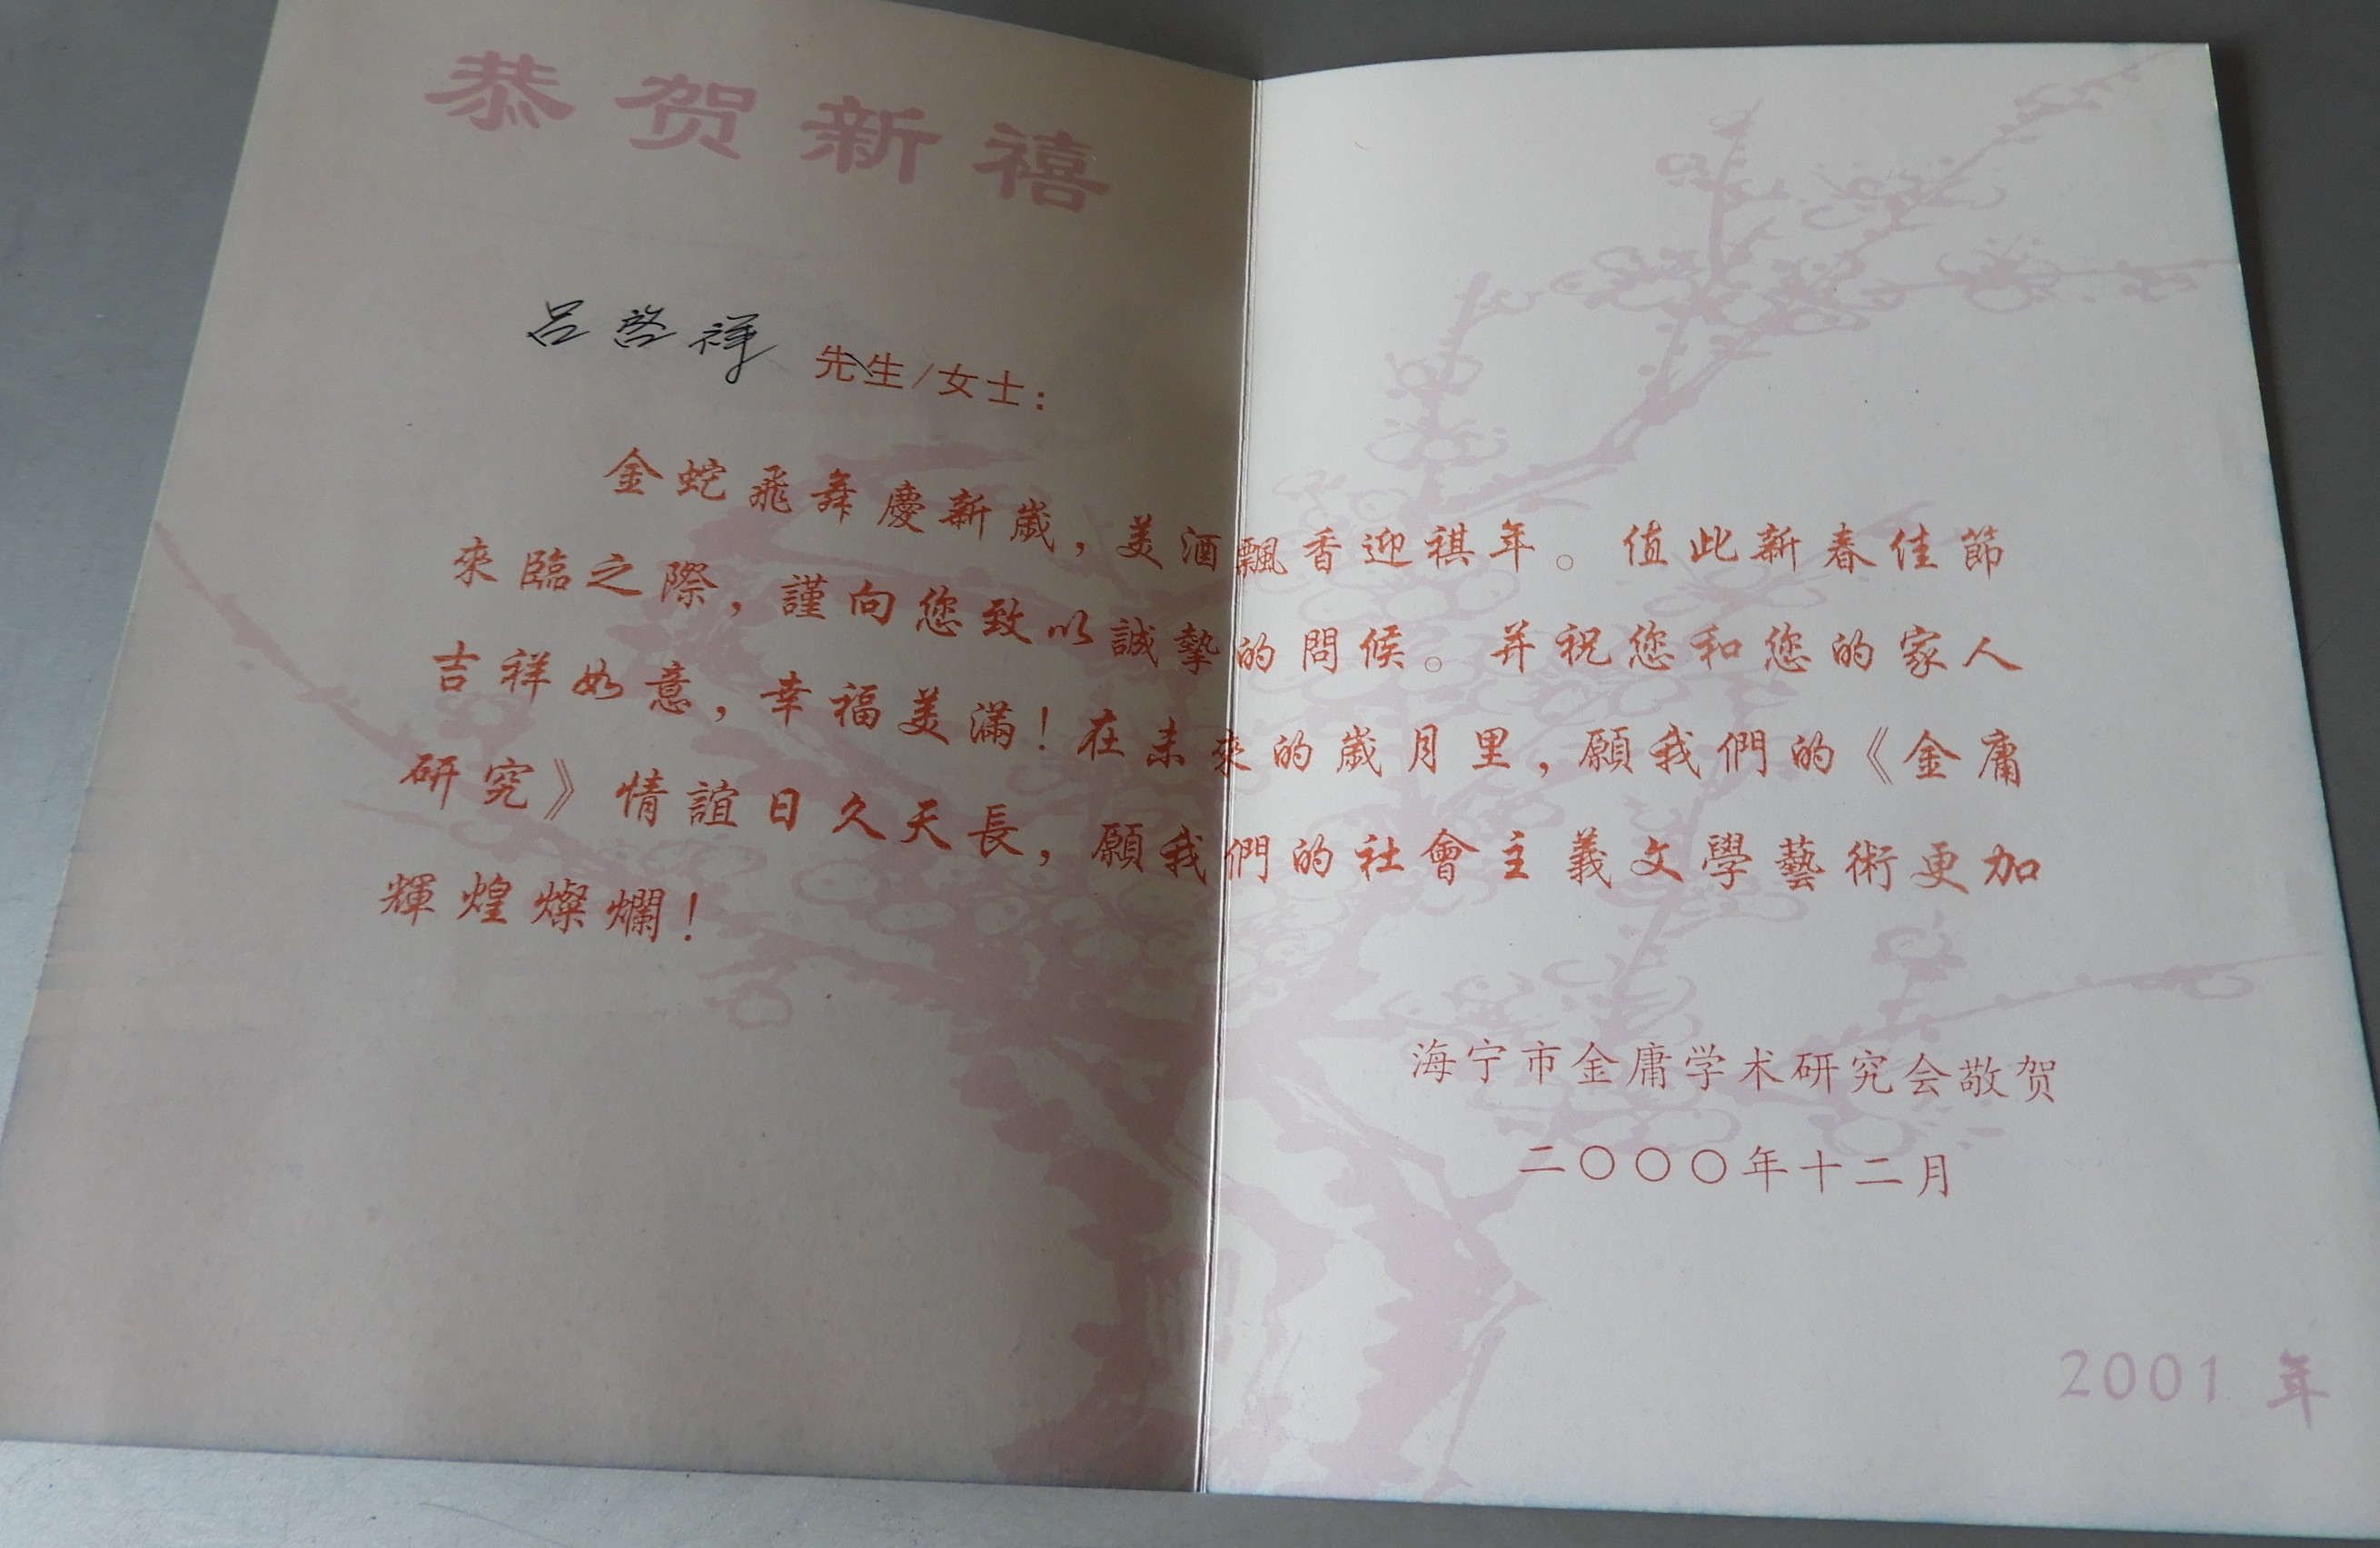 恭贺新禧
吕启祥 先生/女士：
金蛇飛舞慶新歲，美酒飄香迎祺年。值此新春佳節
來臨之際，謹向您致以誠摯的問候。并祝您和您的家人
吉祥如意，幸福美滿！在未來的歲月里，願我們的《金庸
研究》情誼日久天長，願我們的社會主義文學藝術更加
輝煌燦爛！
海宁市金庸学术研究会敬贺
二〇〇〇年十二月
2001 年